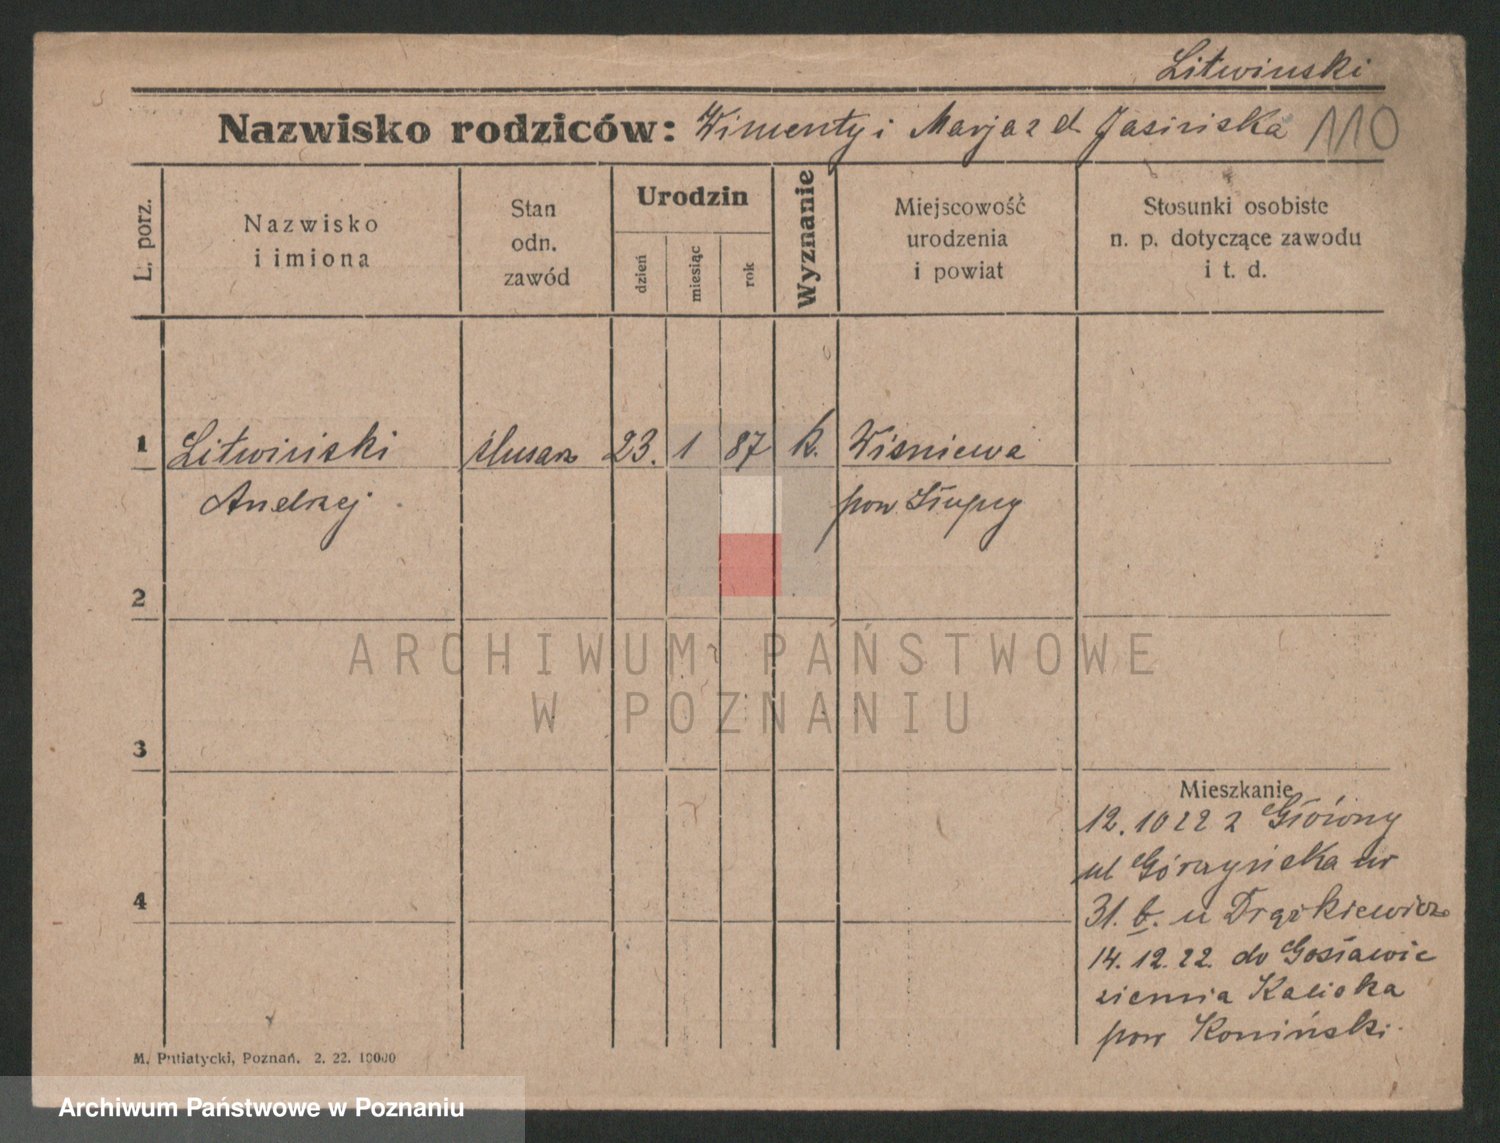 Litwinski
Nazwisko rodziców: Wincenty i Marja z d Jasińska 110
L. porz.
Nazwisko
i imiona
Stan
odn.
zawód
Urodzin
dzień
miesiąc
rok
Wyznanie
Miejscowość
urodzenia
i powiat
Stosunki osobiste
n. p. dotyczące zawodu
i t. d.
1 Litwiński ślusarz 23. 1 87 k. Wisniewa
Andrzej pow Słupcy
2
ARCHIWUM PAŃSTWOWE
W POZNANIU
3
Mieszkanie
12.10 22 z Główny
ul
nr
4
31. b. u
14.12.22 do Gosławic
ziemia Kaliska
pow Koniński.
M. Putiatycki, Poznań. 2. 22. 10000
Archiwum Państwowe w Poznaniu